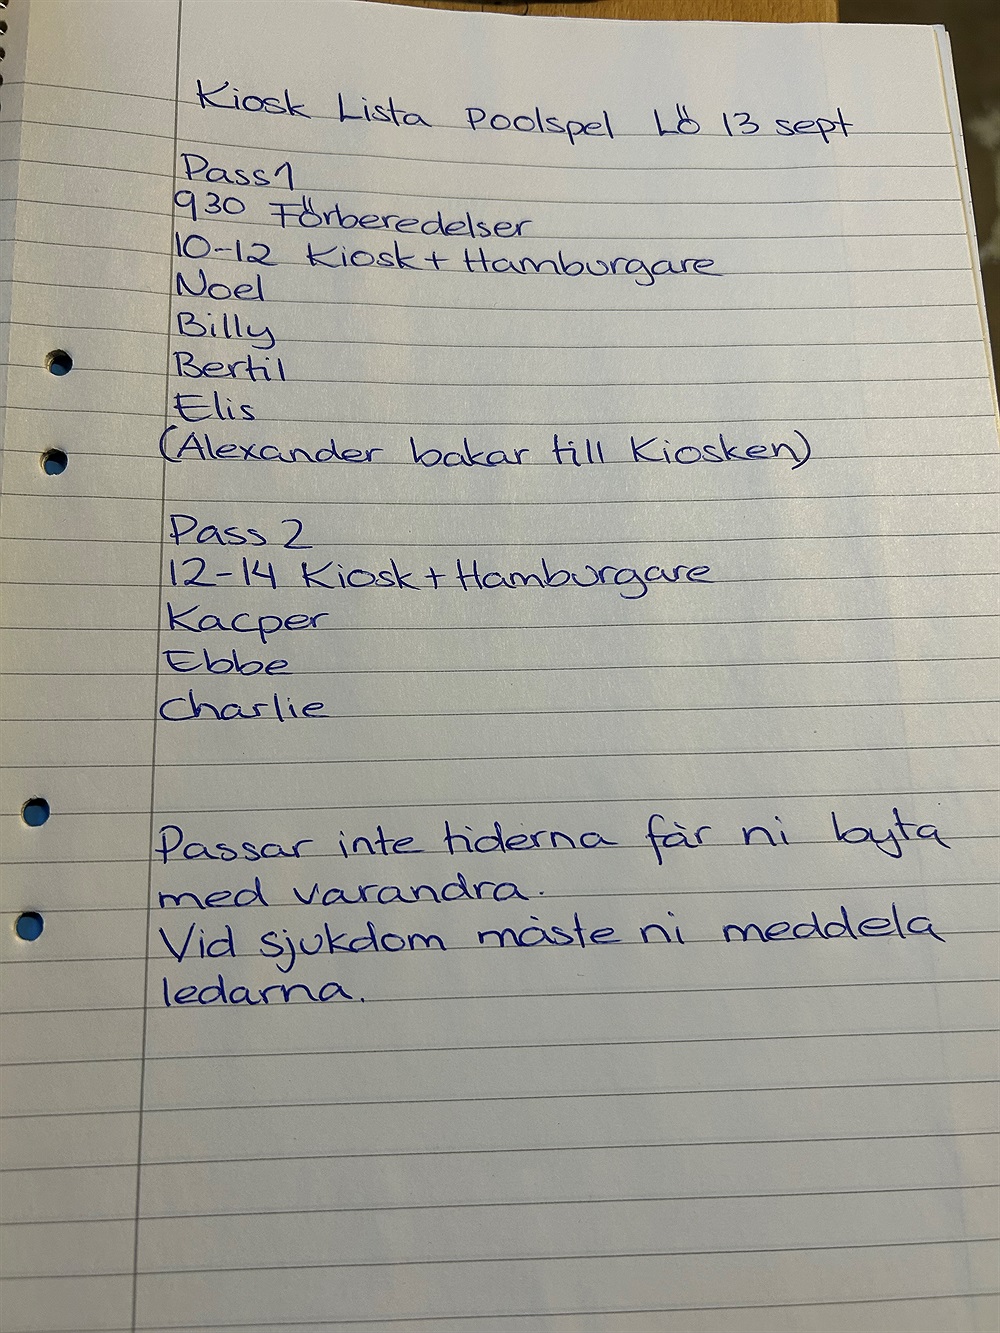 Kiosk Lista Poolspel Lö 13 sept
Pass 1
930 Förberedelser
10-12 Kiosk + Hamburgare
Noel
Billy
Bertil
Elis
(Alexander bakar till Kiosken)
Pass 2
12-14 Kiosk + Hamburgare
Kacper
Ebbe
Charlie
Passar inte tiderna får ni byta
med varandra.
Vid sjukdom måste ni meddela
ledarna.